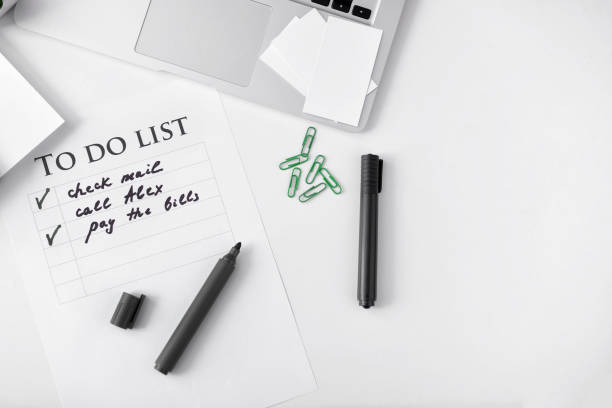 TO DO LIST
✓ check mail
call Alex
✓ pay the bills